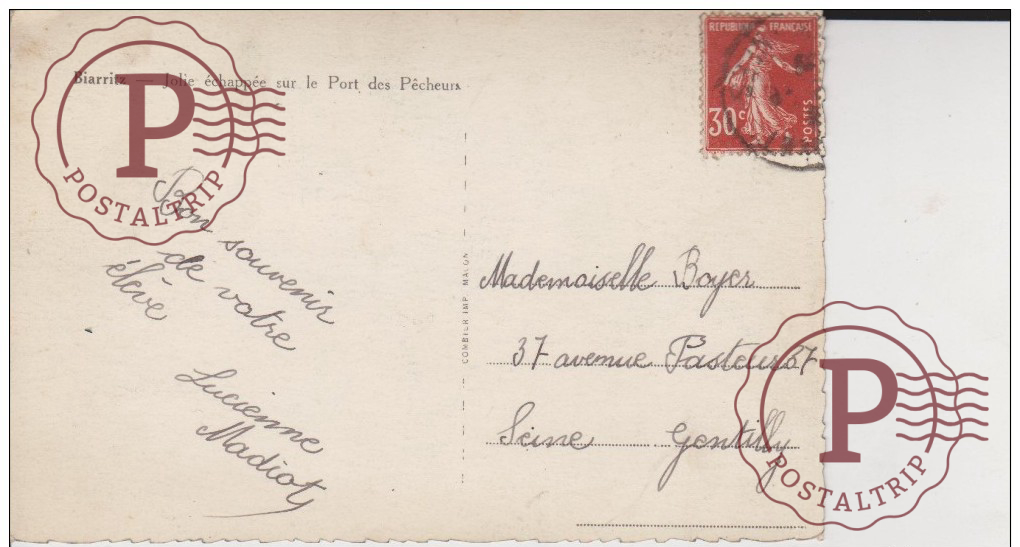 Biarritz — Jolie échappée sur le Port des Pêcheurs
RÉPUBLIQUE FRANÇAISE
30c
POSTES
P
POSTALTRIP
Bon souvenir
de votre
élève
Lucienne
Madiot
COMBIER IMP. MACON
Mademoiselle Boyer
37 avenue Pasteur 37
Seine Gentilly
P
POSTALTRIP